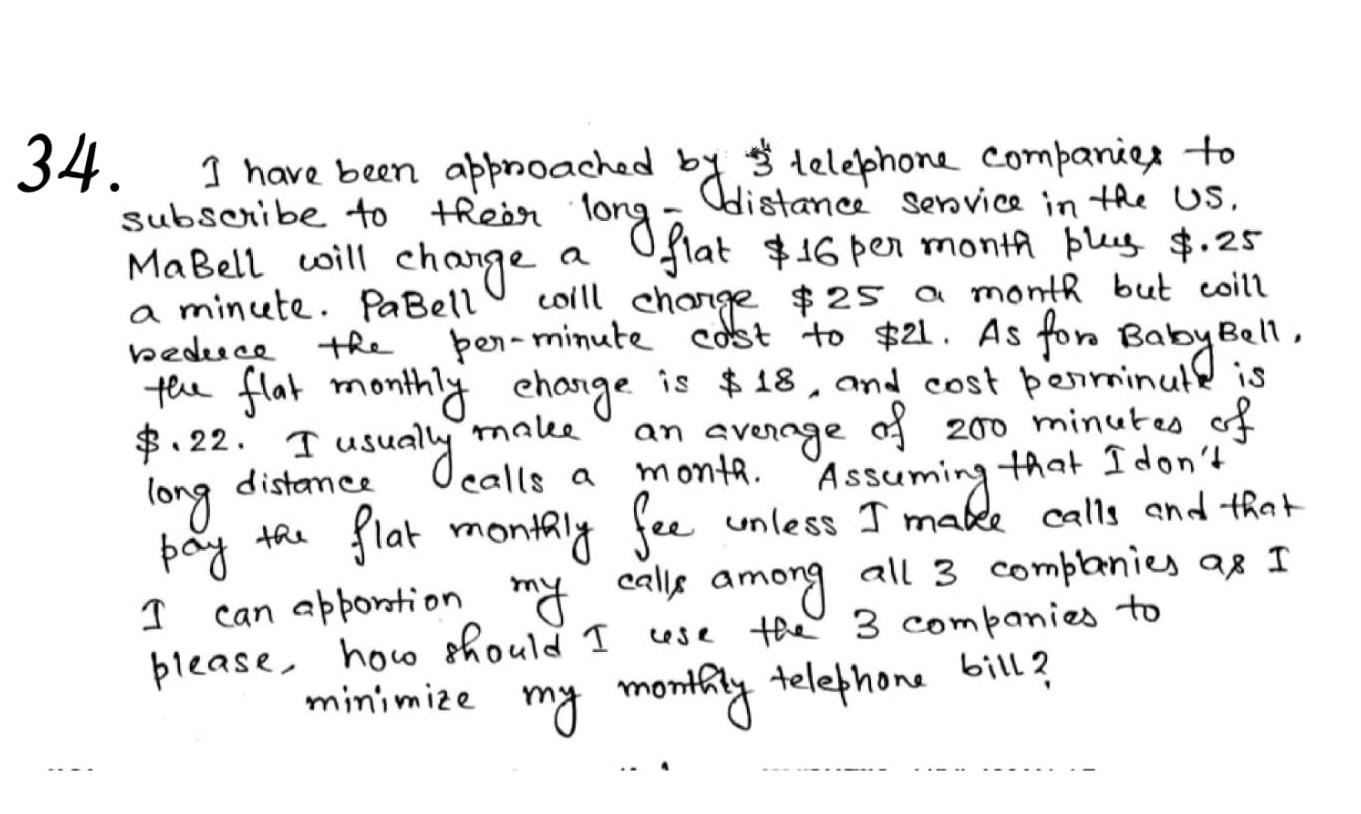 34. I have been approached by 3 telephone companies to
subscribe to their long-distance service in the US.
MaBell will charge a flat $16 per month plus $.25
a minute. PaBell will charge $25 a month but will
reduce the per-minute cost to $21. As for BabyBell,
the flat monthly charge is $18, and cost perminute is
$.22. I usually make an average of 200 minutes of
long distance calls a month. Assuming that I don't
pay the flat monthly fee unless I make calls and that
I can apportion my calls among all 3 companies as I
please, how should I use the 3 companies to
minimize my monthly telephone bill?